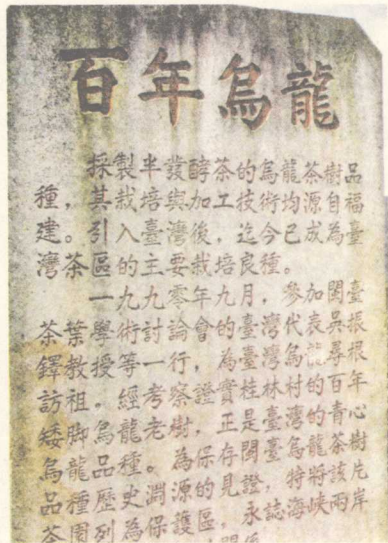 百年烏龍
採製半發酵茶的烏龍茶樹品
種，其栽培與加工技術均源自福
建。引入臺灣後，迄今已成為臺
灣茶區的主要栽培良種。
一九九零年九月，參加閩臺
茶葉學術討論會的臺灣代表吳振
鐸教授等一行，為臺灣烏龍尋根
訪祖。經考察證實桂林村的百年
矮腳烏龍老樹，正是臺灣的青心
烏龍品種。為保存閩臺烏龍茶樹
品種歷史淵源的見證，特將該片
茶園列為保護區，永誌海峽兩岸